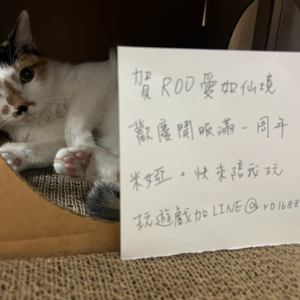 賀ROO愛如仙境
歡慶開服滿一周年
米婭。快來陪我玩
玩遊戲加LINE@ro1688